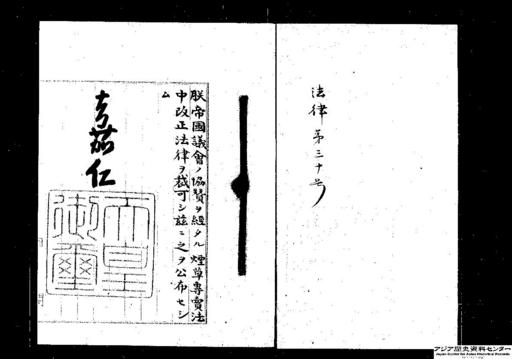 法律第三十号
朕帝國議會ノ協贊ヲ經タル煙草專賣法
中改正法律ヲ裁可シ茲ニ之ヲ公布セシ
ム
嘉仁
天皇
御璽
アジア歴史資料センター
Japan Center for Asian Historical Records